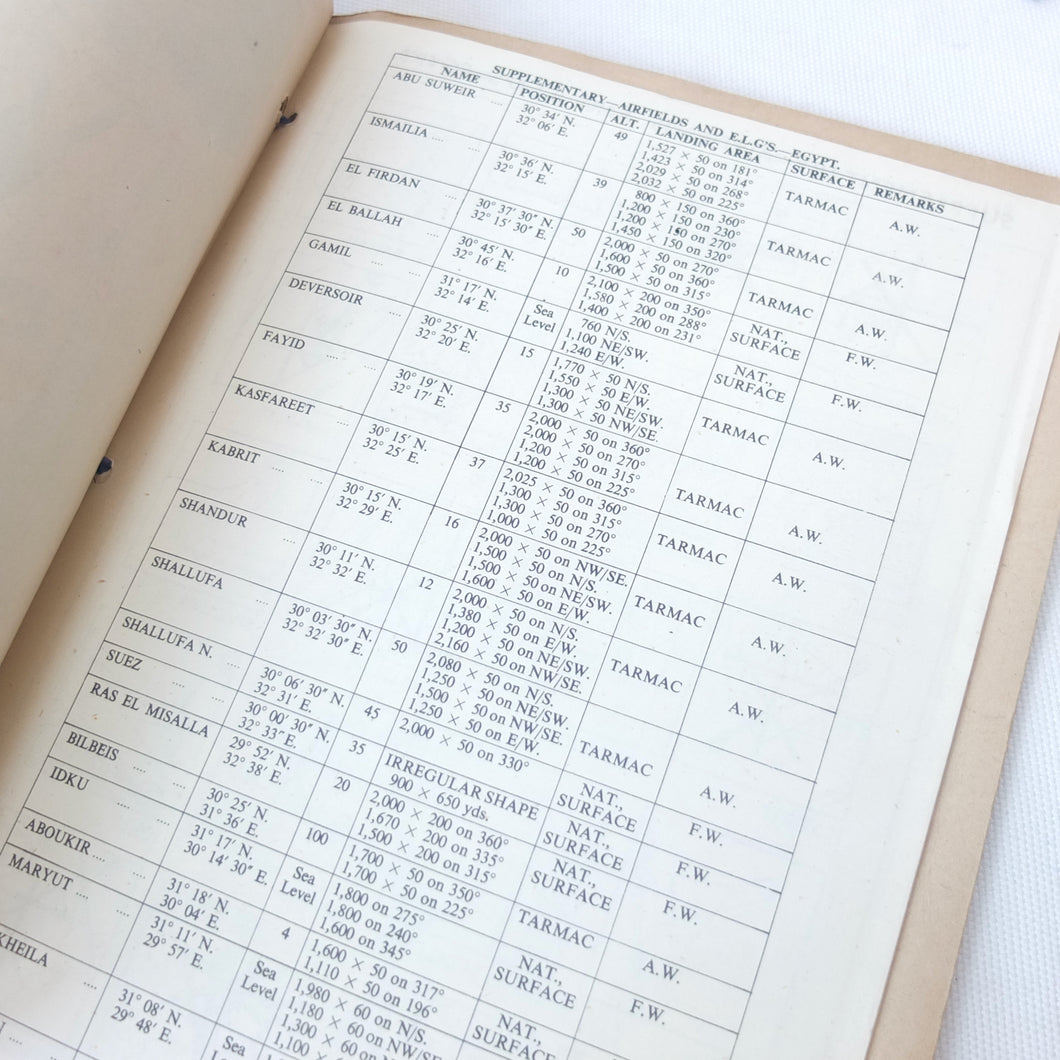 SUPPLEMENTARY—AIRFIELDS AND E.L.G'S.—EGYPT.
NAME POSITION ALT. LANDING AREA SURFACE REMARKS
ABU SUWEIR .... 30° 34′ N. 49 1,527 × 50 on 181° TARMAC A.W.
32° 06′ E. 1,423 × 50 on 314°
2,029 × 50 on 268°
2,032 × 50 on 225°
ISMAILIA .... .... 30° 36′ N. 39 800 × 150 on 360° TARMAC A.W.
32° 15′ E. 1,200 × 150 on 230°
1,200 × 150 on 270°
1,450 × 150 on 320°
EL FIRDAN .... 30° 37′ 30″ N. 50 2,000 × 50 on 270° TARMAC A.W.
32° 15′ 30″ E. 1,600 × 50 on 360°
1,500 × 50 on 315°
EL BALLAH .... 30° 45′ N. 10 2,100 × 200 on 350° NAT., F.W.
32° 16′ E. 1,580 × 200 on 288° SURFACE
1,400 × 200 on 231°
GAMIL .... .... 31° 17′ N. Sea 760 N/S. NAT., F.W.
32° 14′ E. Level 1,100 NE/SW. SURFACE
1,240 E/W.
DEVERSOIR .... 30° 25′ N. 15 1,770 × 50 N/S. TARMAC A.W.
32° 20′ E. 1,550 × 50 E/W.
1,300 × 50 NE/SW.
1,300 × 50 NW/SE.
FAYID .... .... 30° 19′ N. 35 2,000 × 50 on 360° TARMAC A.W.
32° 17′ E. 2,000 × 50 on 270°
1,200 × 50 on 315°
1,200 × 50 on 225°
KASFAREET .... 30° 15′ N. 37 2,025 × 50 on 360° TARMAC A.W.
32° 25′ E. 1,300 × 50 on 315°
1,300 × 50 on 270°
1,000 × 50 on 225°
KABRIT .... .... 30° 15′ N. 16 2,000 × 50 on NW/SE. TARMAC A.W.
32° 29′ E. 1,500 × 50 on N/S.
1,500 × 50 on NE/SW.
1,600 × 50 on E/W.
SHANDUR .... 30° 11′ N. 12 2,000 × 50 on N/S. TARMAC A.W.
32° 32′ E. 1,380 × 50 on E/W.
1,200 × 50 on NE/SW.
2,160 × 50 on NW/SE.
SHALLUFA .... 30° 03′ 30″ N. 50 2,080 × 50 on N/S. TARMAC A.W.
32° 32′ 30″ E. 1,250 × 50 on NE/SW.
1,500 × 50 on NW/SE.
1,250 × 50 on E/W.
SHALLUFA N. .... 30° 06′ 30″ N. 45 2,000 × 50 on 330° NAT., F.W.
32° 31′ E. SURFACE
SUEZ .... .... 30° 00′ 30″ N. 35 IRREGULAR SHAPE NAT., F.W.
32° 33′ E. 900 × 650 yds. SURFACE
RAS EL MISALLA 29° 52′ N. 20 2,000 × 200 on 360° NAT., F.W.
32° 38′ E. 1,670 × 200 on 335° SURFACE
1,500 × 200 on 315°
BILBEIS .... .... 30° 25′ N. 100 1,700 × 50 on 350° TARMAC A.W.
31° 36′ E. 1,700 × 50 on 225°
IDKU .... .... 31° 17′ N. Sea 1,800 on 275° NAT., F.W.
30° 14′ 30″ E. Level 1,800 on 240° SURFACE
1,600 on 345°
ABOUKIR .... .... 31° 18′ N. 4 1,600 × 50 on 317° NAT.,
30° 04′ E. 1,110 × 50 on 196° SURFACE
MARYUT .... .... 31° 11′ N. Sea 1,980 × 60 on N/S.
29° 57′ E. Level 1,180 × 60 on NW/SE.
1,300 × 60 on
KHEILA .... 31° 08′ N. Sea
29° 48′ E.